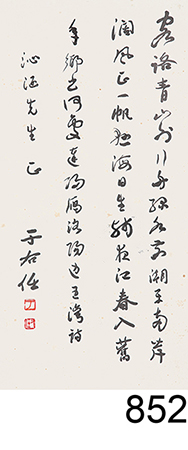 客路青山外行舟綠水前潮平兩岸
闊風正一帆懸海日生殘夜江春入舊
年鄉書何處達歸雁洛陽邊王灣詩
沁先生正
于右任
852